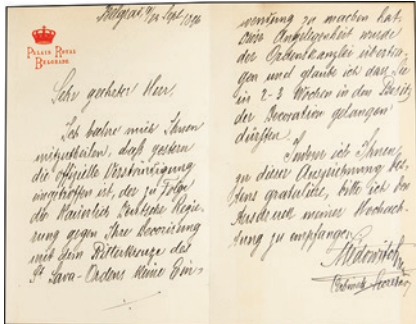 PALAIS ROYAL
BELGRADE
Belgrad Sept. 1896
Sehr geehrter Herr,
Ich beehre mich Ihnen
mitzutheilen, daß gestern
die offizielle Verständigung
eingetroffen ist, der zu Folge
die Kaiserlich Deutsche Regie-
rung gegen Ihre Decorirung
mit dem Ritterkreuze des
St Sava-Ordens keine Ein-
wendung zu machen hat.
Diese Angelegenheit wurde
der Ordenskanzlei übertra-
gen und glaube ich daß Sie
in 2-3 Wochen in den Besitz
der Decoration gelangen
dürften.
Indem ich Ihnen
zu dieser Auszeichnung bes-
tens gratuliere, bitte ich den
Ausdruck meiner Hochach-
tung zu empfangen